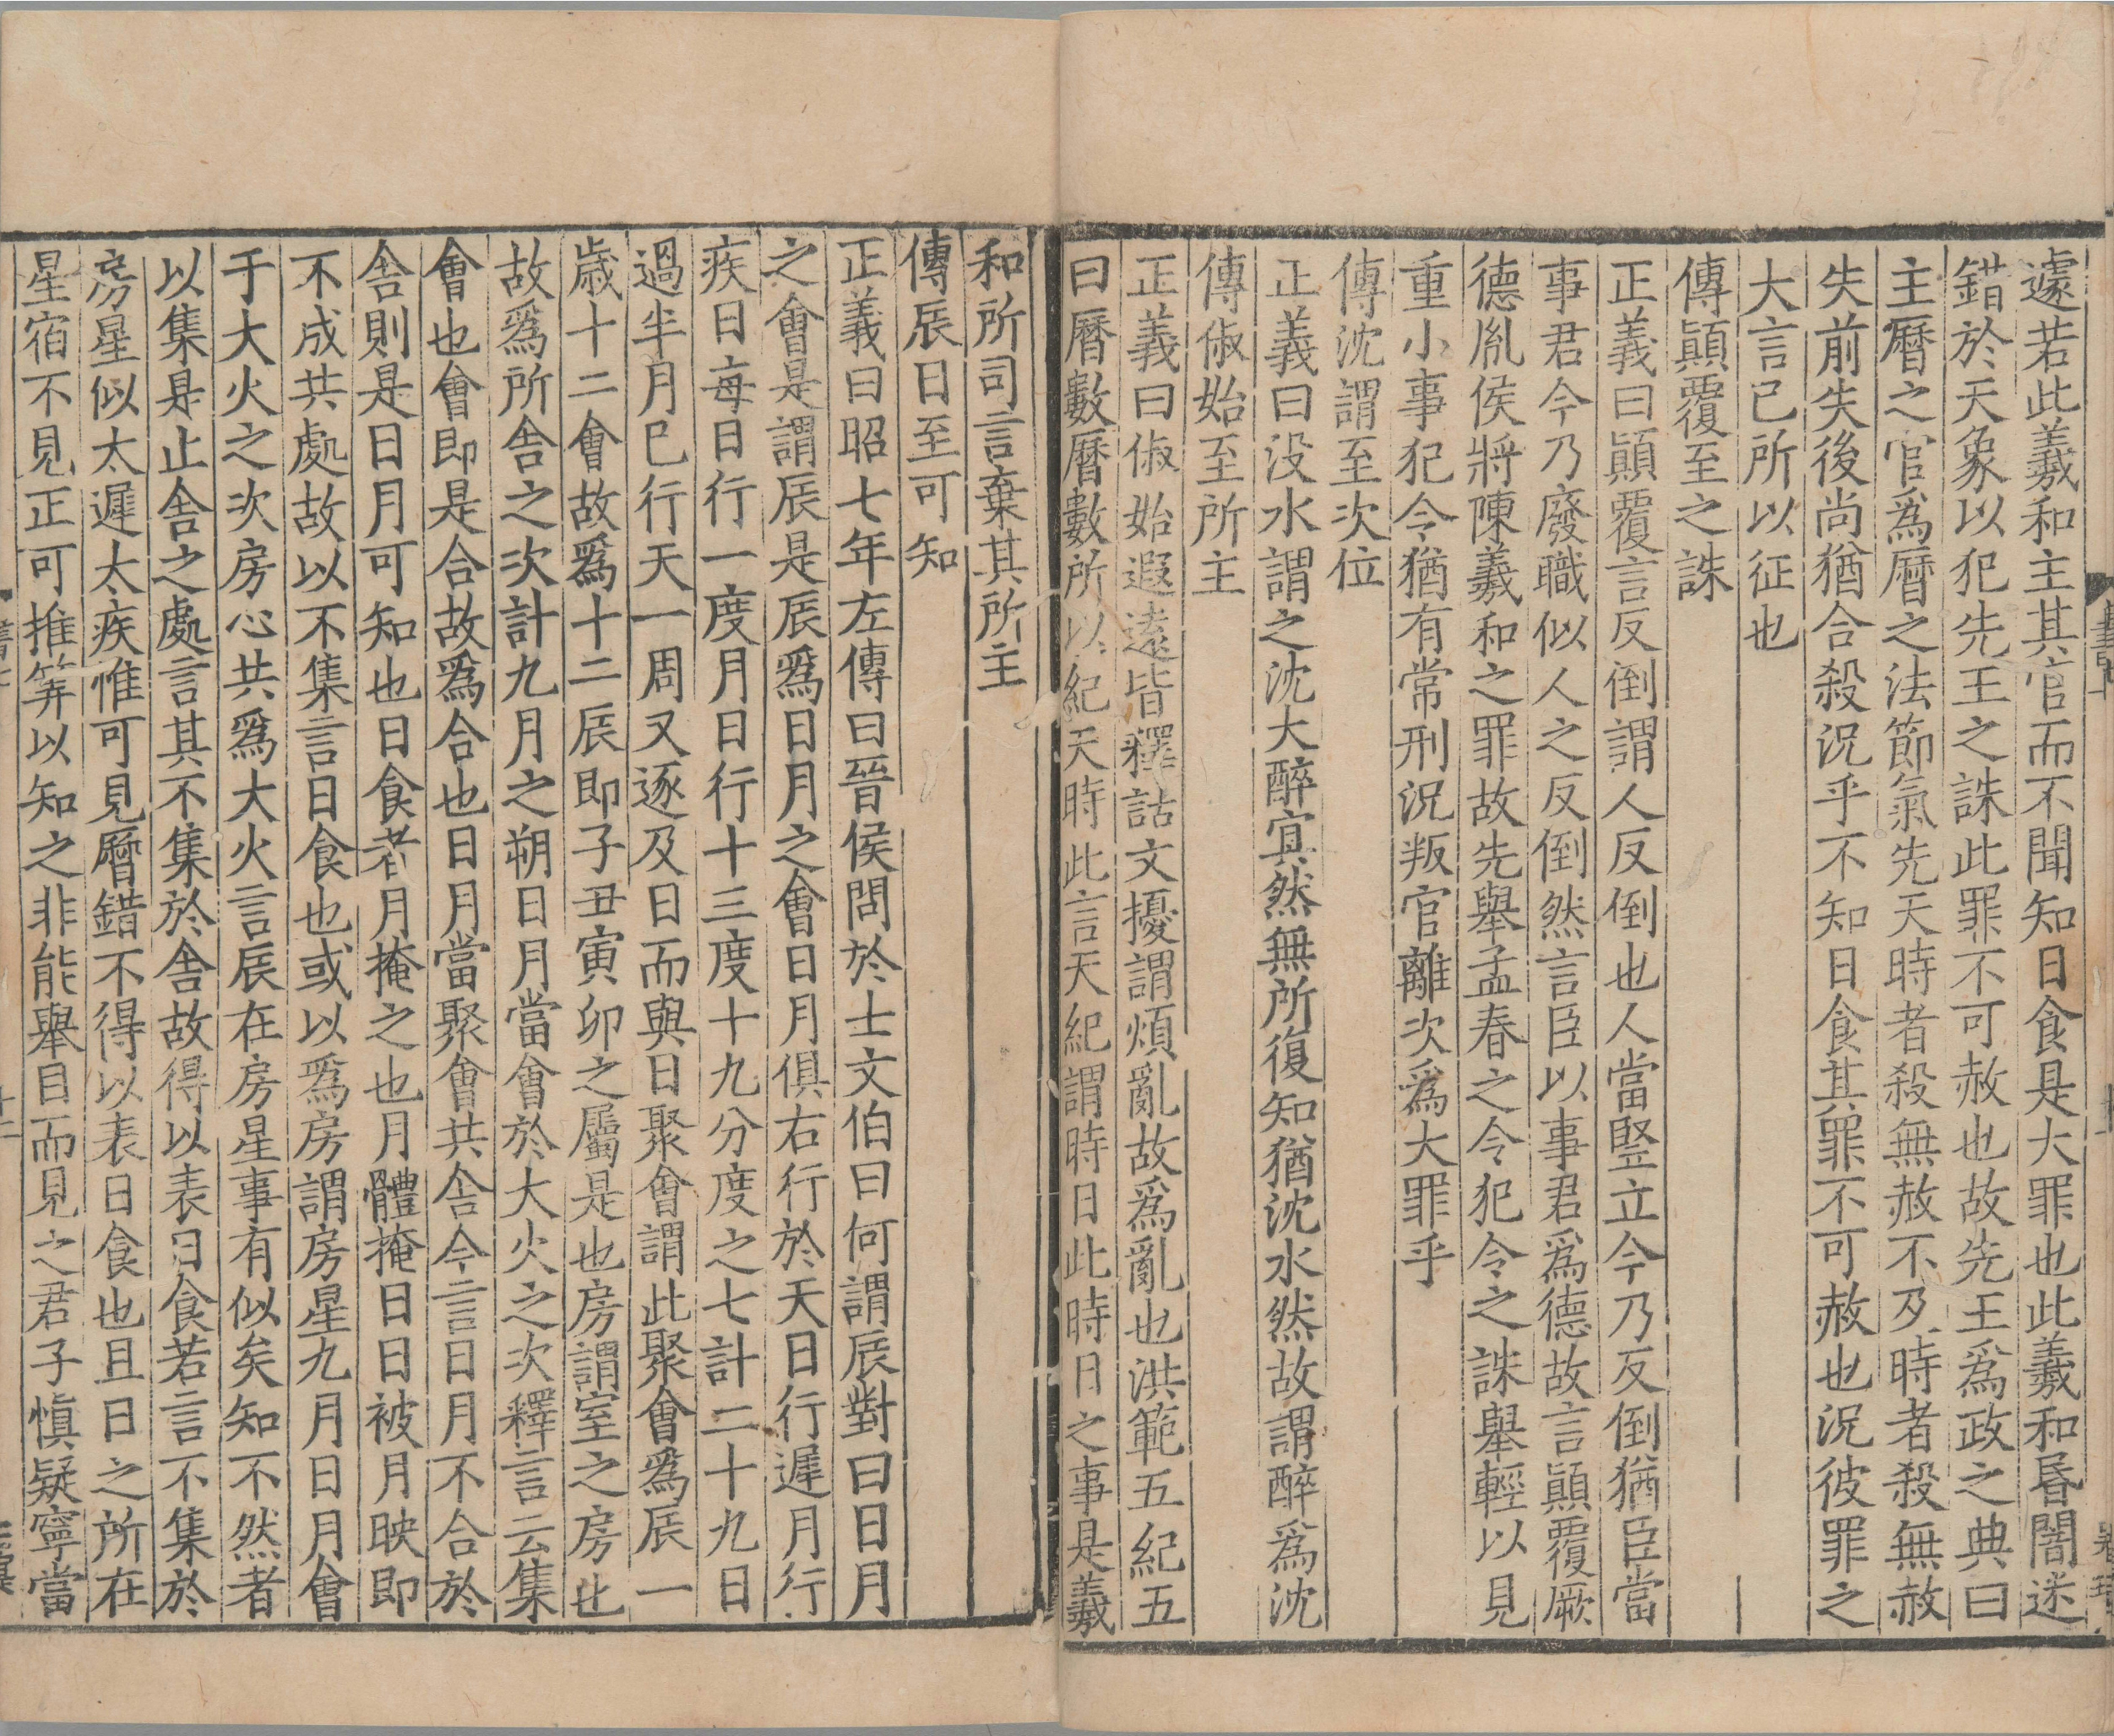 遽若此羲和主其官而不聞知日食是大罪也此羲和昬闇迷
錯於天象以犯先王之誅此罪不可赦也故先王爲政之典曰
主曆之官爲曆之法節氣先天時者殺無赦不及時者殺無赦
失前失後尚猶合殺況乎不知日食其罪不可赦也況彼罪之
大言已所以征也
傳顚覆至之誅
正義曰顚覆言反倒謂人反倒也人當竪立今乃反倒猶臣當
事君今乃廢職似人之反倒然言臣以事君爲德故言顚覆厥
德胤侯將陳羲和之罪故先舉孟春之令犯令之誅舉輕以見
重小事犯令猶有常刑況叛官離次爲大罪乎
傳沈謂至次位
正義曰没水謂之沈大醉冥然無所復知猶沈水然故謂醉爲沈
傳俶始至所主
正義曰俶始遐遠皆釋詁文擾謂煩亂故爲亂也洪範五紀五
曰曆數曆數所以紀天時此言天紀謂時日此時日之事是羲
和所司言棄其所主
傳辰日至可知
正義曰昭七年左傳曰晉侯問於士文伯曰何謂辰對曰日月
之會是謂辰是辰爲日月之會日月俱右行於天日行遲月行
疾日每日行一度月日行十三度十九分度之七計二十九日
過半月已行天一周又逐及日而與日聚會謂此聚會爲辰一
歲十二會故爲十二辰即子丑寅卯之屬是也房謂室之房也
故爲所舍之次計九月之朔日月當會於大火之次釋言云集
會也會即是合故爲合也日月當聚會共舍今言日月不合於
舍則是日月可知也日食者月掩之也月體掩日日被月映即
不成共處故以不集言日食也或以爲房謂房星九月日月會
于大火之次房心共爲大火言辰在房星事有似矣知不然者
以集是止舍之處言其不集於舍故得以表日食若言不集於
房星似太遲太疾惟可見曆錯不得以表日食也且日之所在
星宿不見正可推筭以知之非能舉目而見之君子愼疑寧當